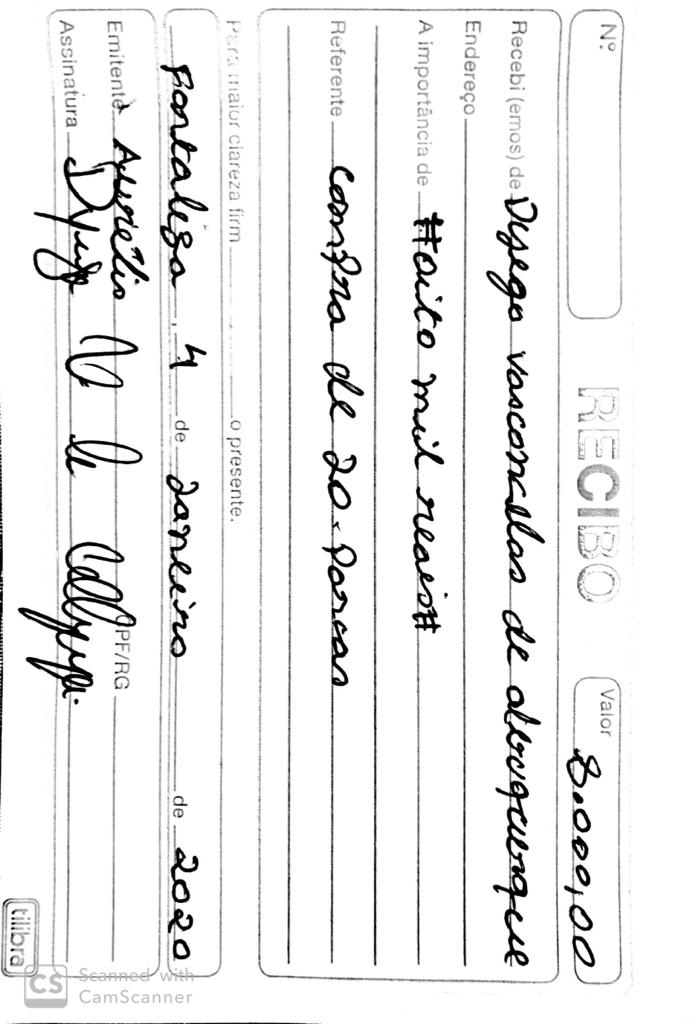 Nº
RECIBO
Valor 8.000,00
Recebi (emos) de Dyego vasconcelos de albuquerque
Endereço
A importância de #oito mil reais#
Referente compra de 20 Porcas
Para maior clareza firm o presente.
Fortaleza, 4 de Janeiro de 2020
Emitente Aurélio CPF/RG
Assinatura
tilibra
CS Scanned with
CamScanner